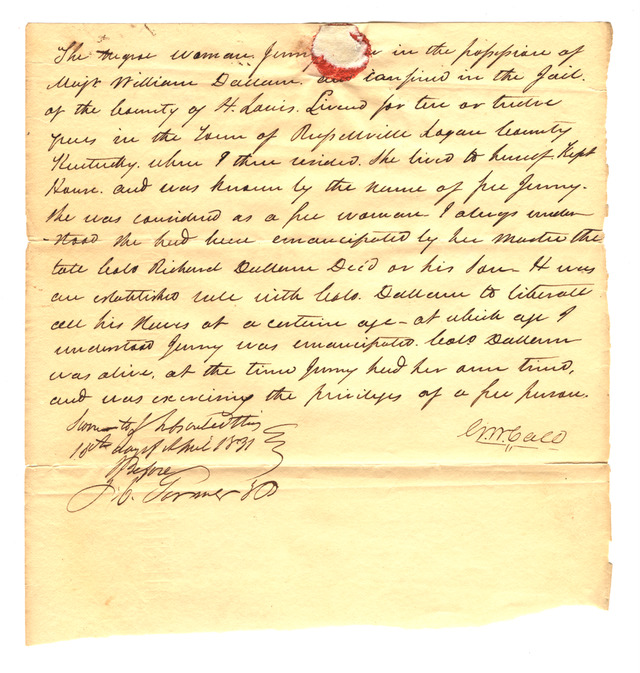 The negroe woman Jenny in the possession of
Majr William Dallam. and confined in the Jail.
of the County of St. Louis. Lived for ten or twelve
years in the Town of Russellville Logan County
Kentucky. where I then resided. She lived to herself. Kept
House. and was known by the name of free Jenny.
She was considered as a free woman. I always under
stood she had been emancipated by her Master the
late Colo Richard Dallam Dec'd or his Son. It was
an established rule with Colo. Dallam to liberate
all his slaves at a certain age - at which age I
understood Jenny was emancipated. Colo. Dallam
was alive. at the time Jenny had her own time,
and was exercising the privileges of a free person.
Sworn to & subscribed this
day of April 1831
Before